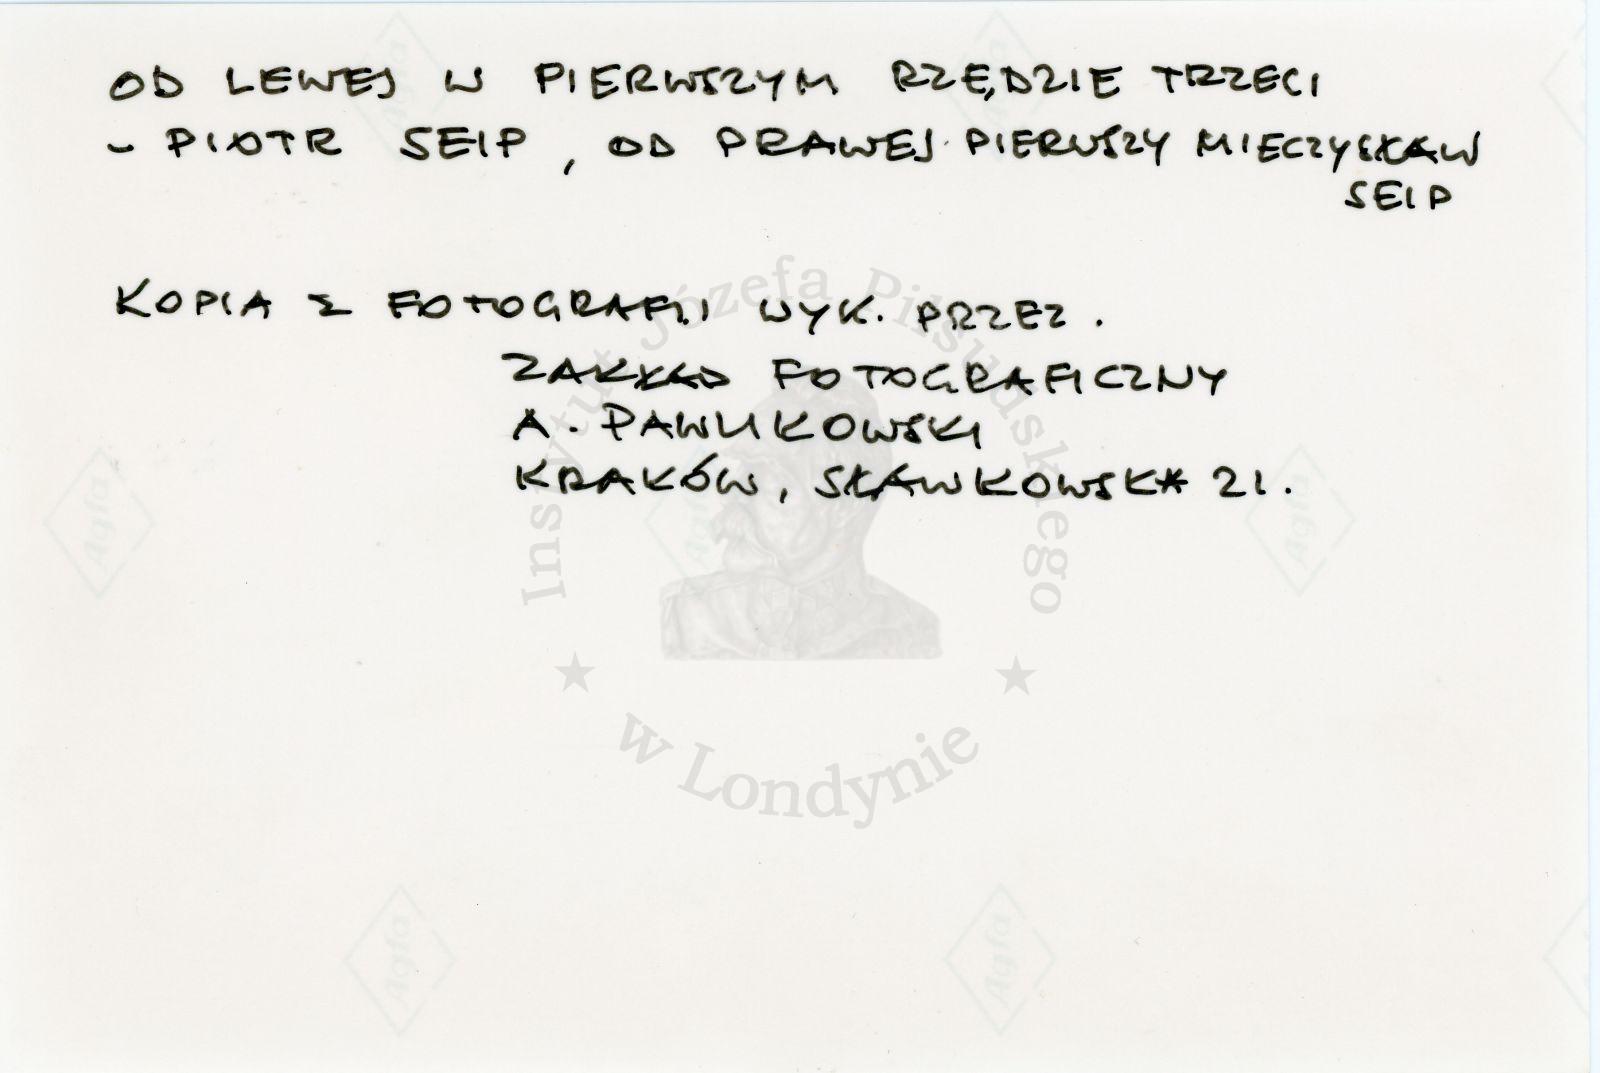 OD LEWEJ W PIERWSZYM RZĘDZIE TRZECI
- PIOTR SEIP, OD PRAWEJ PIERWSZY MIECZYSŁAW
SEIP
KOPIA Z FOTOGRAFII WYK. PRZEZ.
ZAKŁAD FOTOGRAFICZNY
A. PAWLIKOWSKI
KRAKÓW, SŁAWKOWSKA 21.
Instytut Józefa Piłsudskiego
w Londynie
Agfa
Agfa
Agfa
Agfa
Agfa
Agfa
Agfa